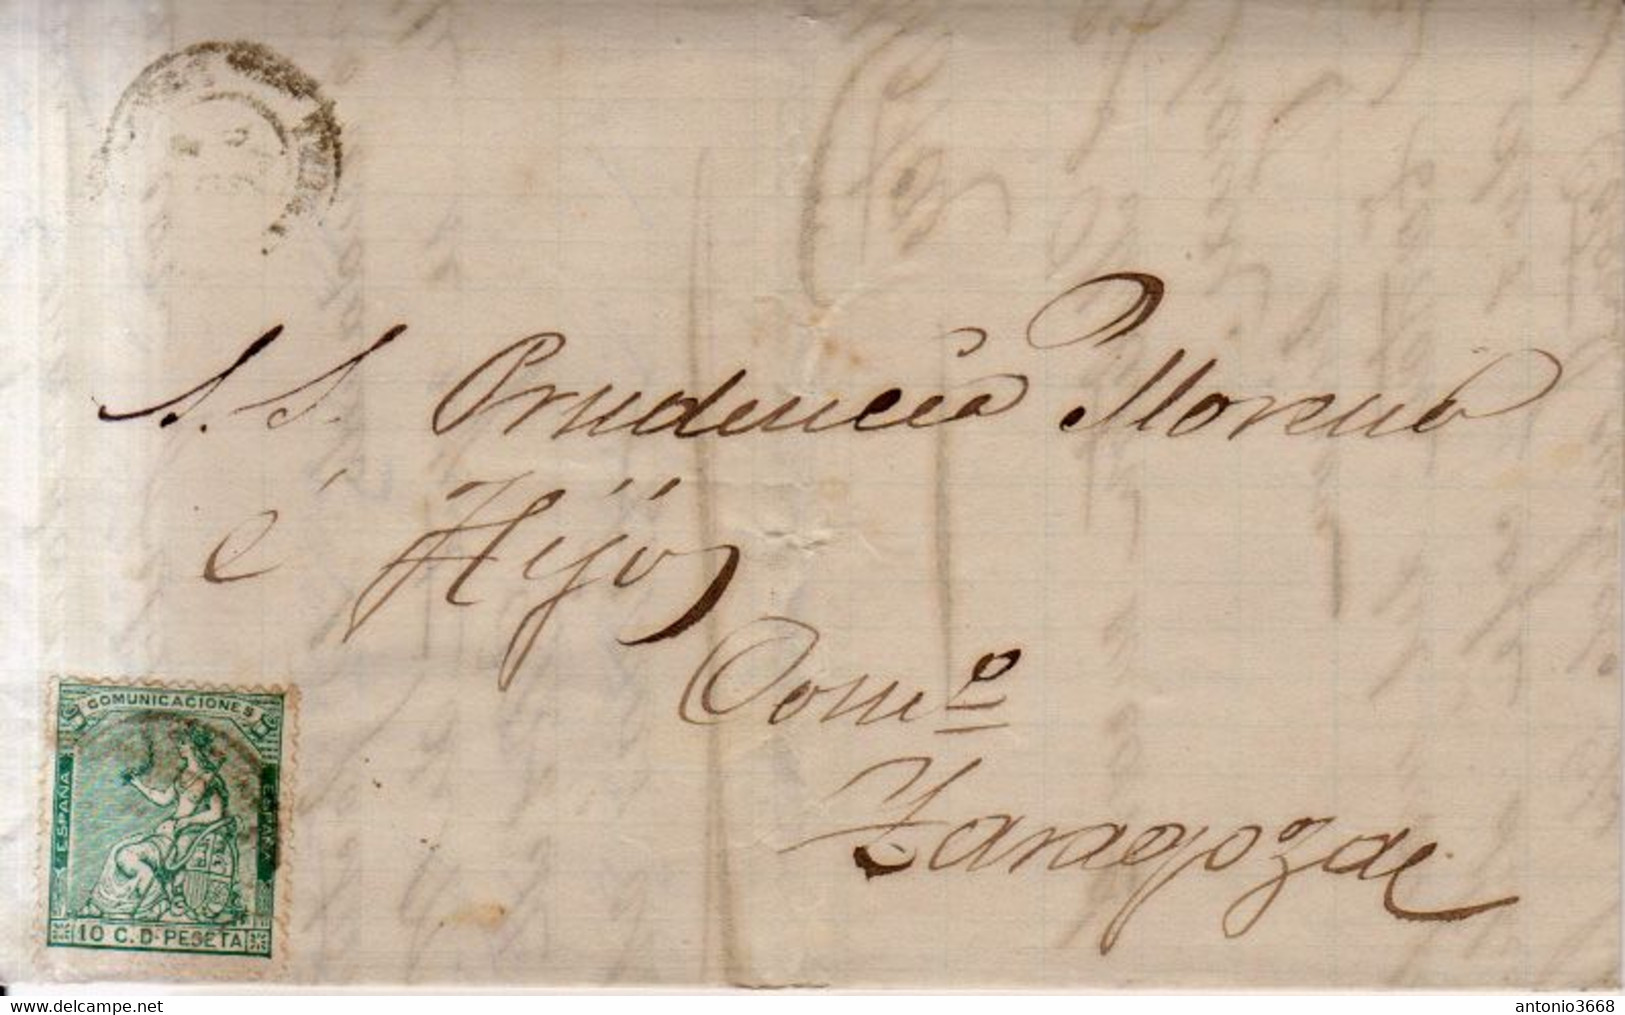 S. S. Prudencio Moreno
é Hijo
Comº
Zaragoza
COMUNICACIONES
ESPAÑA
ESPAÑA
10 C. D. PESETA
www.delcampe.net
antonio3668